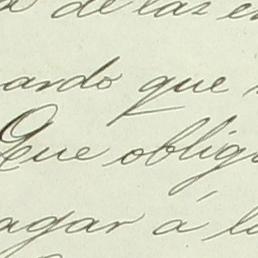 de las en
ardo que
Que oblig
agar á lo